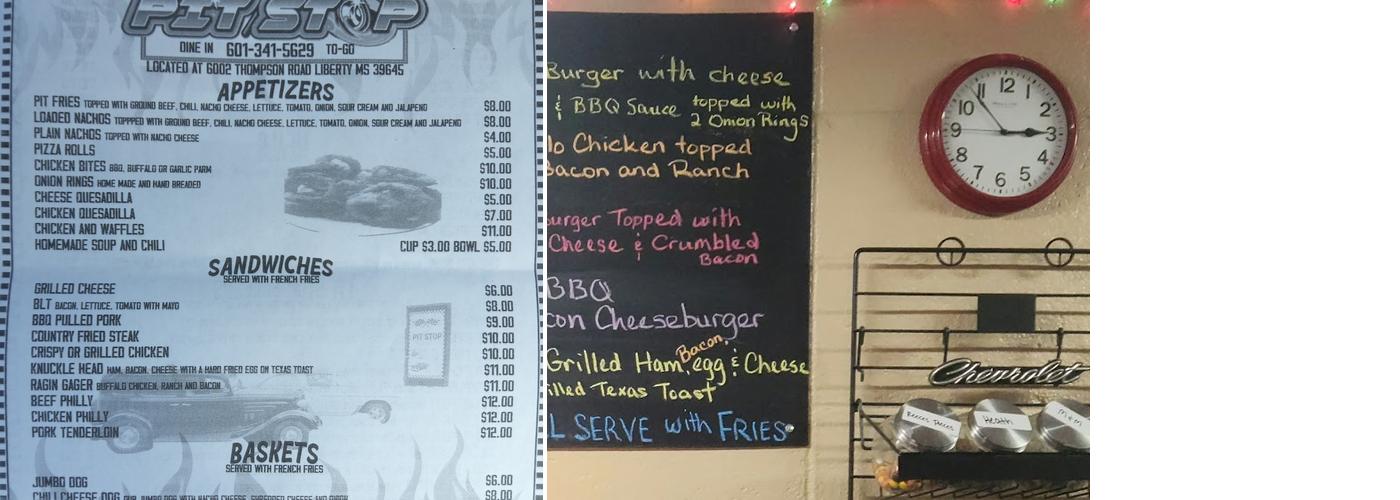 PIT STOP
DINE IN 601-341-5629 TO-GO
LOCATED AT 6002 THOMPSON ROAD LIBERTY MS 39645
APPETIZERS
PIT FRIES TOPPED WITH GROUND BEEF, CHILI, NACHO CHEESE, LETTUCE, TOMATO, ONION, SOUR CREAM AND JALAPENO $8.00
LOADED NACHOS TOPPPED WITH GROUND BEEF, CHILI, NACHO CHEESE, LETTUCE, TOMATO, ONION, SOUR CREAM AND JALAPENO $8.00
PLAIN NACHOS TOPPED WITH NACHO CHEESE $4.00
PIZZA ROLLS $5.00
CHICKEN BITES BBQ, BUFFALO OR GARLIC PARM $10.00
ONION RINGS HOME MADE AND HAND BREADED $10.00
CHEESE QUESADILLA $5.00
CHICKEN QUESADILLA $7.00
CHICKEN AND WAFFLES $11.00
HOMEMADE SOUP AND CHILI CUP $3.00 BOWL $5.00
SANDWICHES
SERVED WITH FRENCH FRIES
GRILLED CHEESE $6.00
BLT BACON, LETTUCE, TOMATO WITH MAYO $8.00
BBQ PULLED PORK $9.00
COUNTRY FRIED STEAK $10.00
CRISPY OR GRILLED CHICKEN $10.00
KNUCKLE HEAD HAM, BACON, CHEESE WITH A HARD FRIED EGG ON TEXAS TOAST $11.00
RAGIN GAGER BUFFALO CHICKEN, RANCH AND BACON $11.00
BEEF PHILLY $12.00
CHICKEN PHILLY $12.00
PORK TENDERLOIN $12.00
PIT STOP
BASKETS
SERVED WITH FRENCH FRIES
JUMBO DOG $6.00
CHILI CHEESE DOG OUR JUMBO DOG WITH NACHO CHEESE, SHREDDED CHEESE AND ONION $8.00
Burger with cheese
& BBQ Sauce topped with
2 Onion Rings
lo Chicken topped
Bacon and Ranch
urger Topped with
Cheese & Crumbled
Bacon
BBQ
con Cheeseburger
Grilled Ham, Bacon, egg & Cheese
illed Texas Toast
L SERVE with FRIES
12
1
2
3
4
5
6
7
8
9
10
11
Chevrolet
Reeces Pieces
Heath
M+M